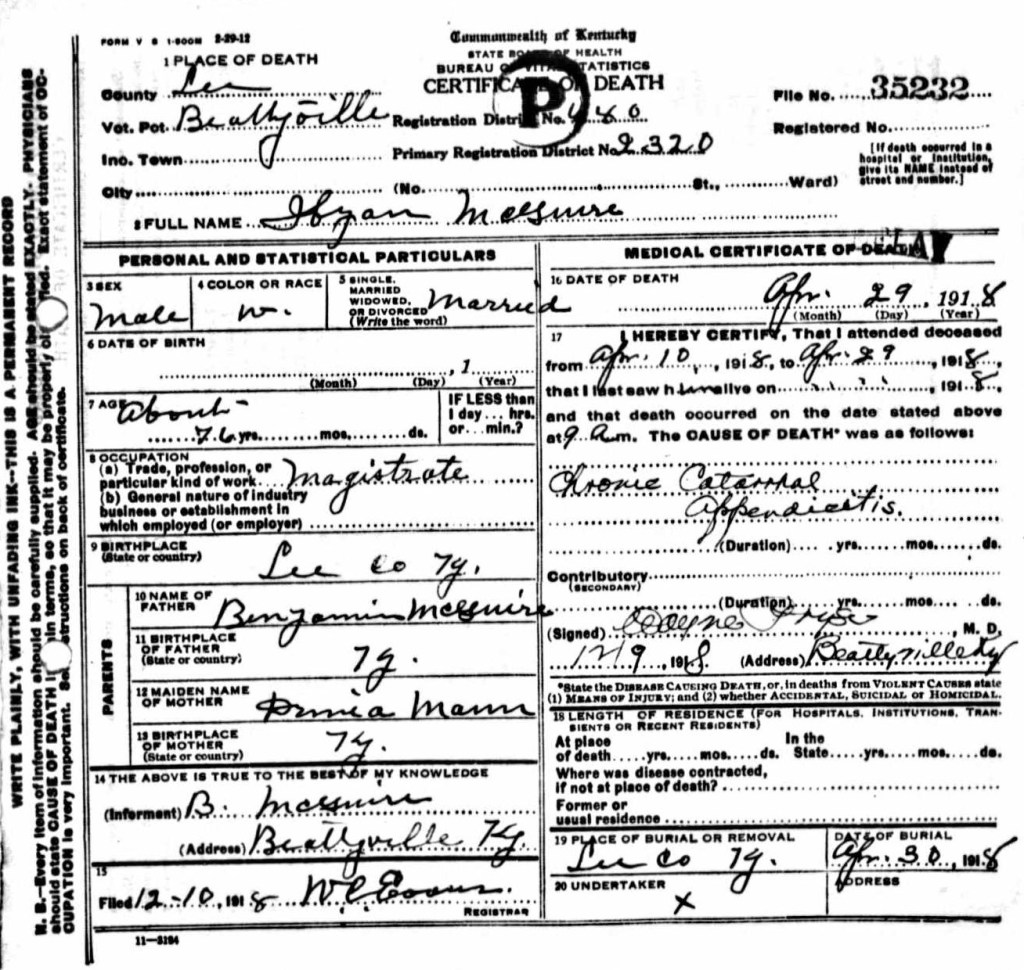 FORM V S 1-500M 2-29-12
Commonwealth of Kentucky
STATE BOARD OF HEALTH
BUREAU OF VITAL STATISTICS
CERTIFICATE OF DEATH
P
1 PLACE OF DEATH
County Lee
Vot. Pot. Beattyville
Inc. Town
City (No. St., Ward)
Registration District No. 480
Primary Registration District No 2320
File No. 35232
Registered No.
[If death occurred in a hospital or institution, give its NAME instead of street and number.]
2 FULL NAME McGuire
PERSONAL AND STATISTICAL PARTICULARS
3 SEX
Male
4 COLOR OR RACE
W.
5 SINGLE, MARRIED WIDOWED, OR DIVORCED (Write the word)
Married
6 DATE OF BIRTH
, 1
(Month) (Day) (Year)
7 AGE About
76 yrs. mos. ds.
IF LESS than 1 day... hrs. or... min.?
8 OCCUPATION
(a) Trade, profession, or particular kind of work Magistrate
(b) General nature of industry business or establishment in which employed (or employer)
9 BIRTHPLACE
(State or country)
Lee Co Ky.
PARENTS
10 NAME OF FATHER
Benjamin McGuire
11 BIRTHPLACE OF FATHER (State or country)
Ky.
12 MAIDEN NAME OF MOTHER
Mann
13 BIRTHPLACE OF MOTHER (State or country)
Ky.
14 THE ABOVE IS TRUE TO THE BEST OF MY KNOWLEDGE
(Informent) B. McGuire
(Address) Beattyville Ky.
15
Filed 12-10, 1918 W C Evans.
REGISTRAR
11—3184
MEDICAL CERTIFICATE OF DEATH
16 DATE OF DEATH
Apr. 29, 1918
(Month) (Day) (Year)
17 I HEREBY CERTIFY, That I attended deceased
from Apr. 10, 1918, to Apr. 29, 1918,
that I last saw him alive on " ", 1918,
and that death occurred on the date stated above
at 9 a.m. The CAUSE OF DEATH* was as follows:
Chronic Catarrhal
Appendicitis.
(Duration) yrs. mos. ds.
Contributory
(SECONDARY)
(Duration) yrs. mos. ds.
(Signed) , M. D.
, 1918 (Address) Beattyville Ky
*State the DISEASE CAUSING DEATH, or, in deaths from VIOLENT CAUSES state
(1) MEANS OF INJURY; and (2) whether ACCIDENTAL, SUICIDAL or HOMICIDAL.
18 LENGTH OF RESIDENCE (FOR HOSPITALS, INSTITUTIONS, TRANSIENTS OR RECENT RESIDENTS)
At place of death yrs. mos. ds. In the State yrs. mos. ds.
Where was disease contracted,
if not at place of death?
Former or
usual residence
19 PLACE OF BURIAL OR REMOVAL
Lee Co Ky.
DATE OF BURIAL
Apr. 30, 1918
20 UNDERTAKER
X
ADDRESS
WRITE PLAINLY, WITH UNFADING INK—THIS IS A PERMANENT RECORD
N. B.—Every item of information should be carefully supplied. AGE should be stated EXACTLY. PHYSICIANS
should state CAUSE OF DEATH in plain terms, so that it may be properly classified. Exact statement of OC-
CUPATION is very important. See instructions on back of certificate.